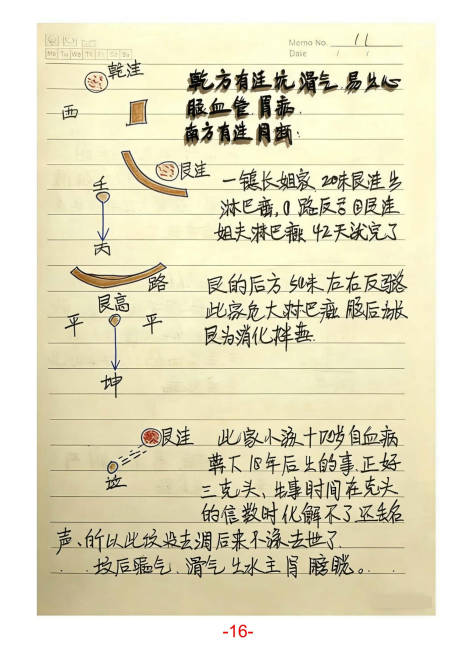 Memo No. 11
Mo Tu We Th Fr Sa Su
Date / /
乾洼
西
乾方有洼坑 漏气 易出心
脑血管 胃病
南方有洼同断:
艮洼
壬
丙
一镇长姐家 20米艮洼出
淋巴癌,
路反弓 艮洼
姐夫淋巴癌 42天就完了
路
艮高
平 平
坤
艮的后方 50米左右反路
此家危大淋巴癌
艮为消化
艮洼
坟
此家小孩十四岁白血病
葬下18年后出的事.正好
三克头、出事时间在克头
的信数时化解不了还丢名
声、所以此坟没去调后来小孩去世了
坟后漏气.漏气出水主肾膀胱。
-16-